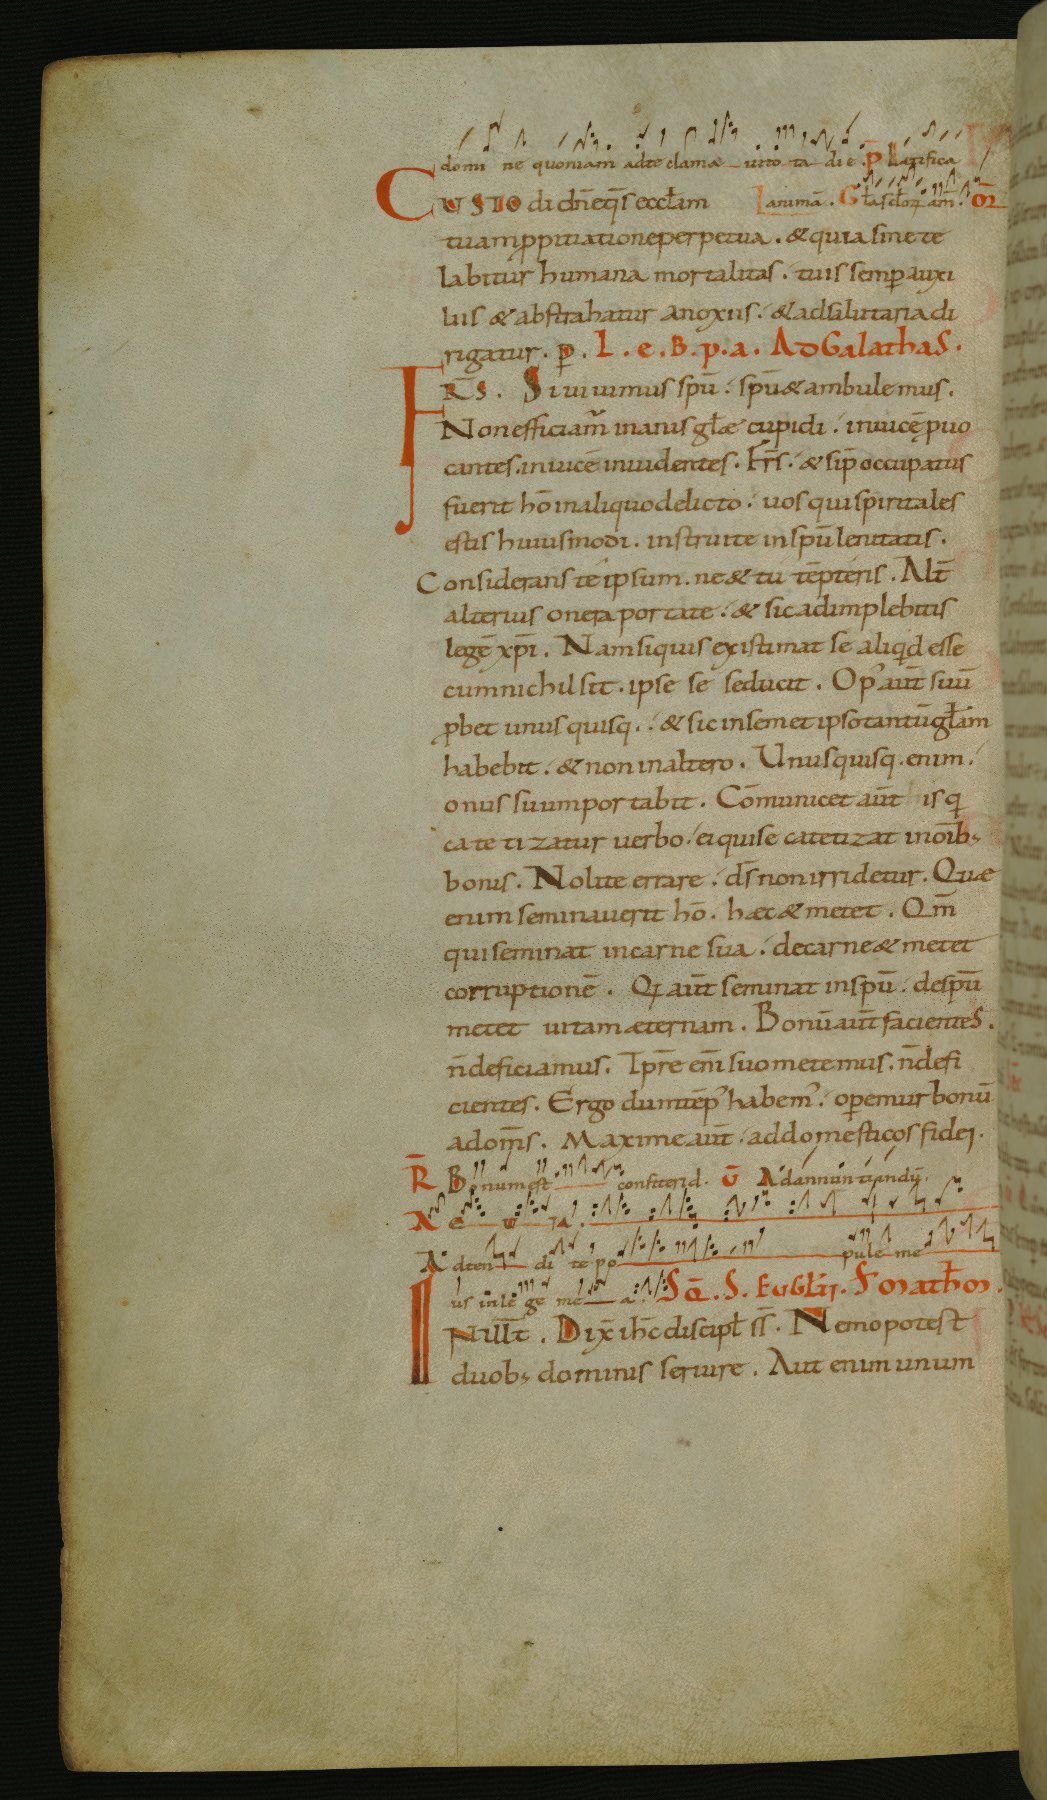 domi ne quoniam adte clama ui to ta die. P̄ Letifica
CUSTO di dn̄e q̄s eccl̄am animā. Gl̄a sclōꝝ am̄. OR̄
tuam p̱pitiatione perpetua. & quia sine te
labitur humana mortalitas. tuis semp̱ auxi
liis & abstrahatur anoxiis. & ad salutaria di
rigatur. p̱. L. e. B. p. a. Ad Galathas.
FR̄S. Si uiuimus sp̄u. sp̄u & ambulemus.
Non efficiam̄ inanis gl̄ae cupidi. inuicē p̱uo
cantes. inuicē inuidentes. Fr̄s. & si p̄occupatus
fuerit hō inaliquo delicto. uos qui spiritales
estis huiusmodi. instruite insp̄u lenitatis.
Considerans te ipsum. ne & tu tēpteris. Alt̄
alterius onera portate. & sic adimplebitis
legē xp̄i. Nam siquis existimat se aliqd esse
cum nichil sit. ipse se seducit. Op' aut̄ suū
p̱bet unus quisq. & sic insemet ipso tantū gl̄am
habebit. & non inaltero. Unusquisq. enim.
onus suum portabit. Cōmunicet aut̄ is q
catetizatur uerbo. ei quise catetizat inoīb;
bonis. Nolite errare. d̄s non irridetur. Quae
enim seminauerit hō. haec & metet. Qm̄
qui seminat incarne sua. decarne & metet
corruptionē. Q aut̄ seminat insp̄u. desp̄u
metet uitam aeternam. Bonū aut̄ facientes.
n̄ deficiamus. Tp̄re em̄ suo metemus. n̄ defi
cientes. Ergo dum tēp' habem'. operemur bonū
ad om̄s. Maxime aut̄ addomesticos fidei.
R̄ Bonum est confiteri d. U̅ Ad annuntiandū.
A e u ia.
Adten di te po pule me
us in le ge me a. SQ̄. S. Euglii. S mathm.
IN ill̄ t̄. Dix̄ ih̄c discipl̄ s̄s. Nemo potest
duob; dominis seruire. Aut enim unum